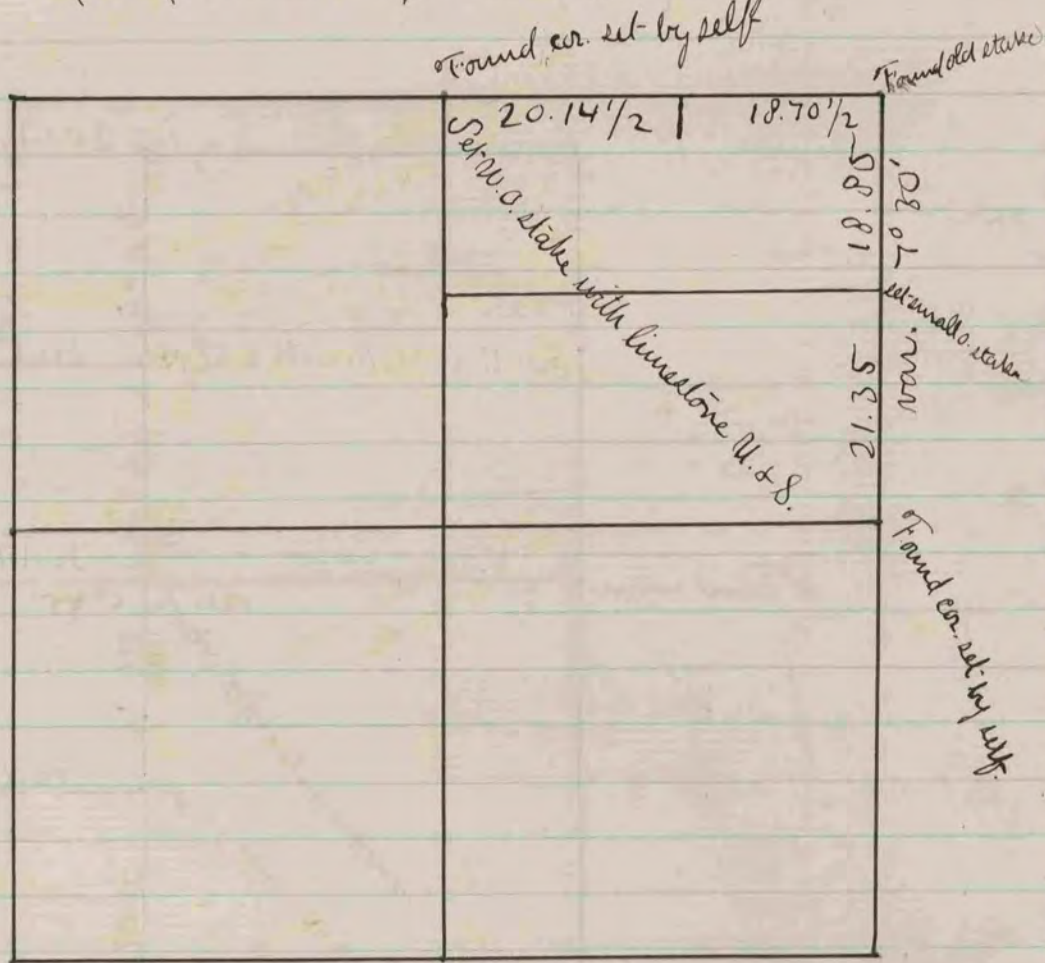 Found cor. set by self
Found old stake
20.14 1/2 | 18.70 1/2
Set W.O. stake with limestone N. & S.
18.85
var. 7° 30'
set small o. stake
21.35
Found cor. set by self.